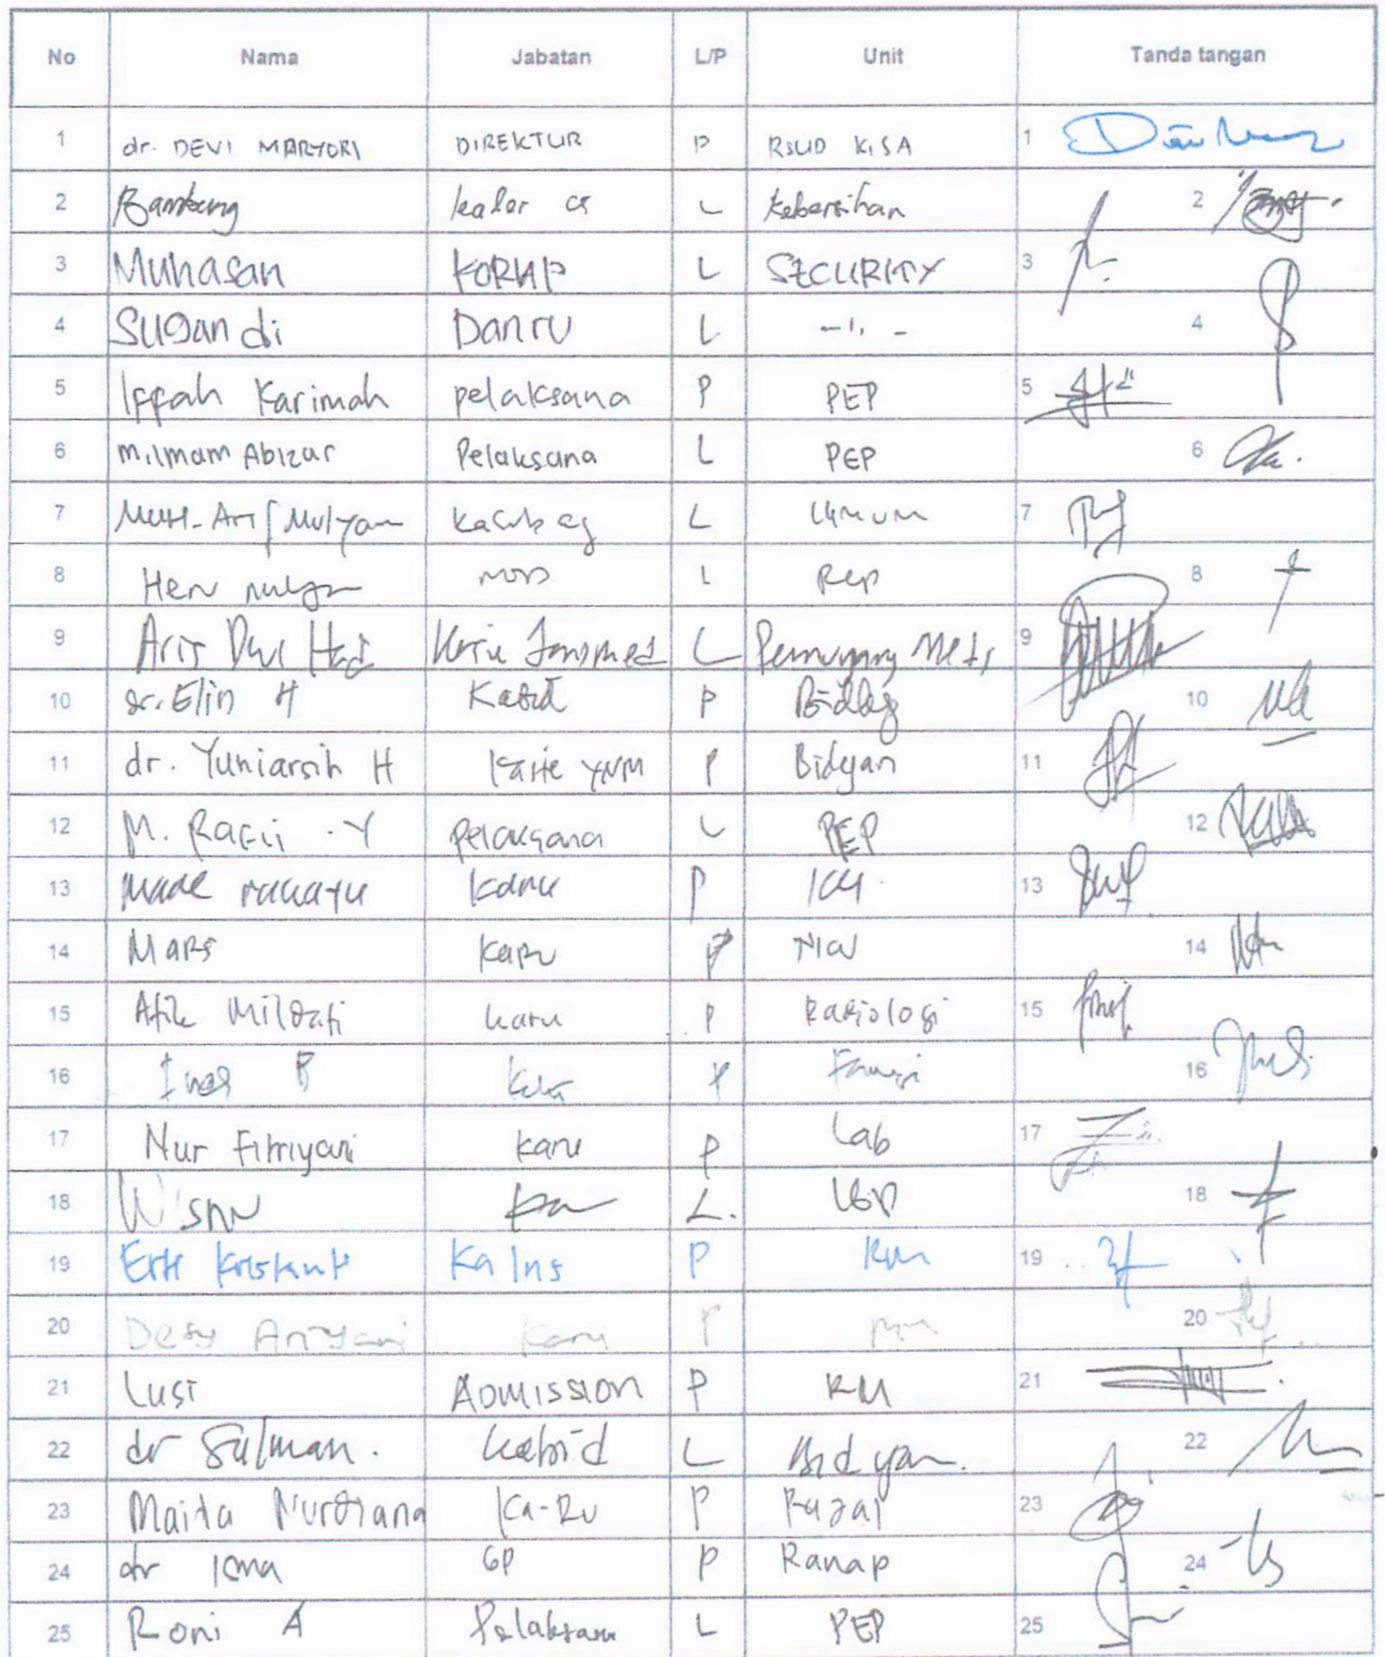 No Nama Jabatan L/P Unit Tanda tangan
1 dr. DEVI MARYORI DIREKTUR P RSUD KiSA 1
2 Bambang kalor cs L Kebersihan 2
3 Muhasan KORUP L SECURITY 3
4 Sugandi Danru L -"- 4
5 Iffah Karimah pelaksana P PEP 5
6 M.Imam Abizar Pelaksana L PEP 6
7 Muh-Arif Mulyan Kasubag L Umum 7
8 Heru L Rep 8
9 Aris Dwi Hadi L 9
10 dr. Elin H Kabid P 10
11 dr. Yuniarsih H Kasie YNM P Bidyan 11
12 M. Rafii .Y Pelaksana L PEP 12
13 Made rahayu Karu P ICU. 13
14 Mars Karu P NICU 14
15 Afik Mildati karu P Radiologi 15
16 P Farmasi 16
17 Nur Fitriyani Karu P Lab 17
18 Wisnu L. IGD 18
19 Erti Kristanti Ka Ins P RM 19
20 Desy Ariyani Karu P RM 20
21 Lusi ADMISSION P RM 21
22 dr Salman. Kabid L Bid yan. 22
23 Maida Nurdiana Ka-Ru P Rajal 23
24 dr Isma GP P Ranap 24
25 Roni A Pelaksana L PEP 25